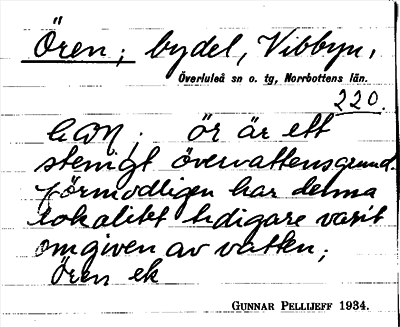 Ören; bydel, Vibbyn,
Överluleå sn o. tg, Norrbottens län.
220.
ör är ett
stenigt övervattensgrund.
Förmodligen har denna
lokalitet tidigare varit
omgiven av vatten;
Ören ek
GUNNAR PELLIJEFF 1934.